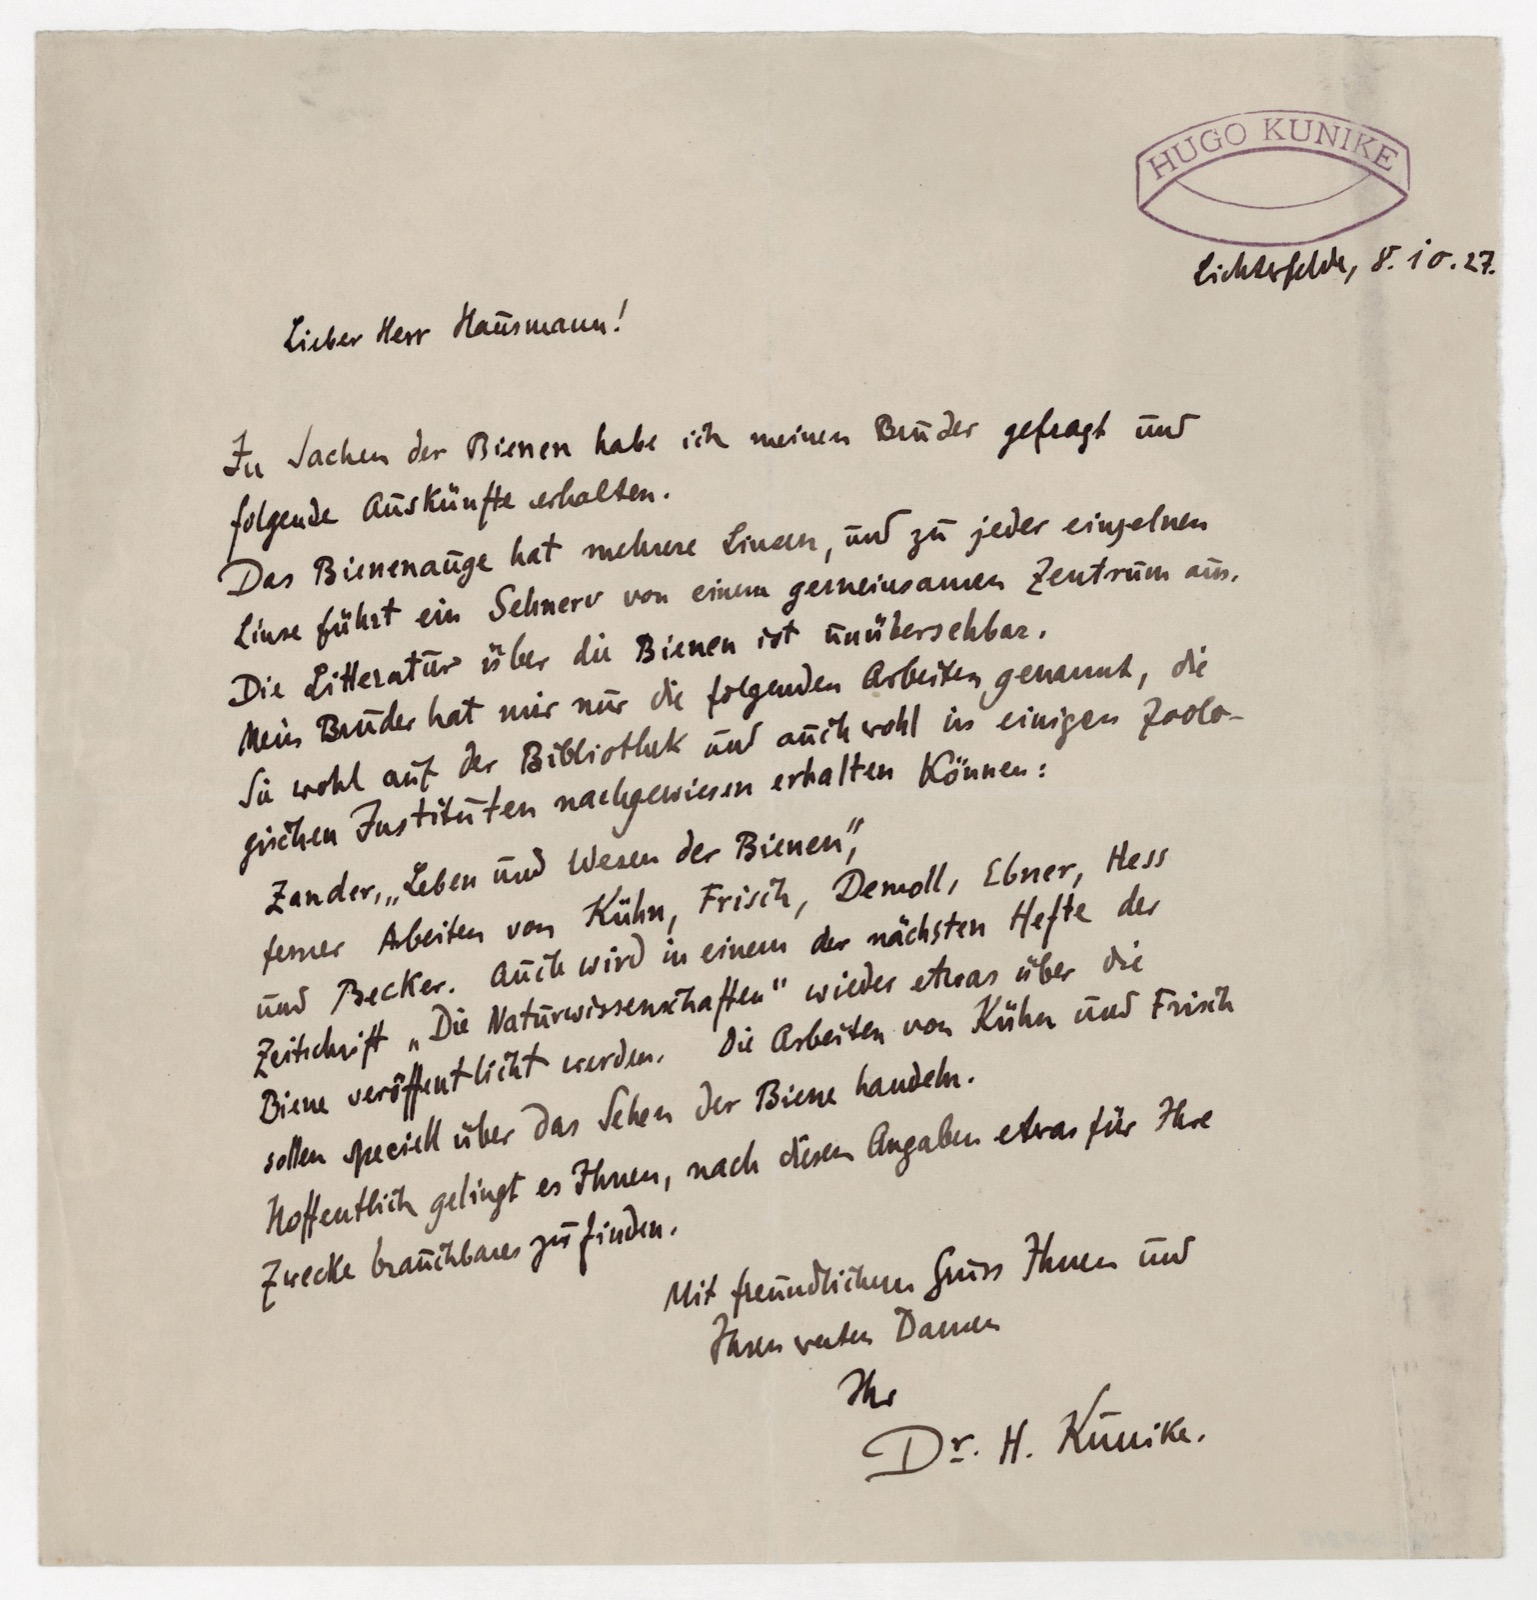 HUGO KUNIKE
Lichterfelde, 8.10.27.
Lieber Herr Hausmann!
In Sachen der Bienen habe ich meinen Bruder gefragt und
folgende Auskünfte erhalten.
Das Bienenauge hat mehrere Linsen, und zu jeder einzelnen
Linse führt ein Sehnerv von einem gemeinsamen Zentrum aus.
Die Litteratur über die Bienen ist unübersehbar.
Mein Bruder hat mir nur die folgenden Arbeiten genannt, die
Sie wohl auf der Bibliothek und auch wohl in einigen Zoolo-
gischen Instituten nachgewiesen erhalten Können:
Zander, „Leben und Wesen der Bienen",
ferner Arbeiten von Kühn, Frisch, Demoll, Ebner, Hess
und Becker. Auch wird in einem der nächsten Hefte der
Zeitschrift „Die Naturwissenschaften" wieder etwas über die
Biene veröffentlicht werden. Die Arbeiten von Kühn und Frisch
sollen speciell über das Sehen der Biene handeln.
Hoffentlich gelingt es Ihnen, nach diesen Angaben etwas für Ihre
Zwecke brauchbares zu finden.
Mit freundlichem Gruss Ihnen und
Ihren werten Damen
Ihr
Dr. H. Kunike.